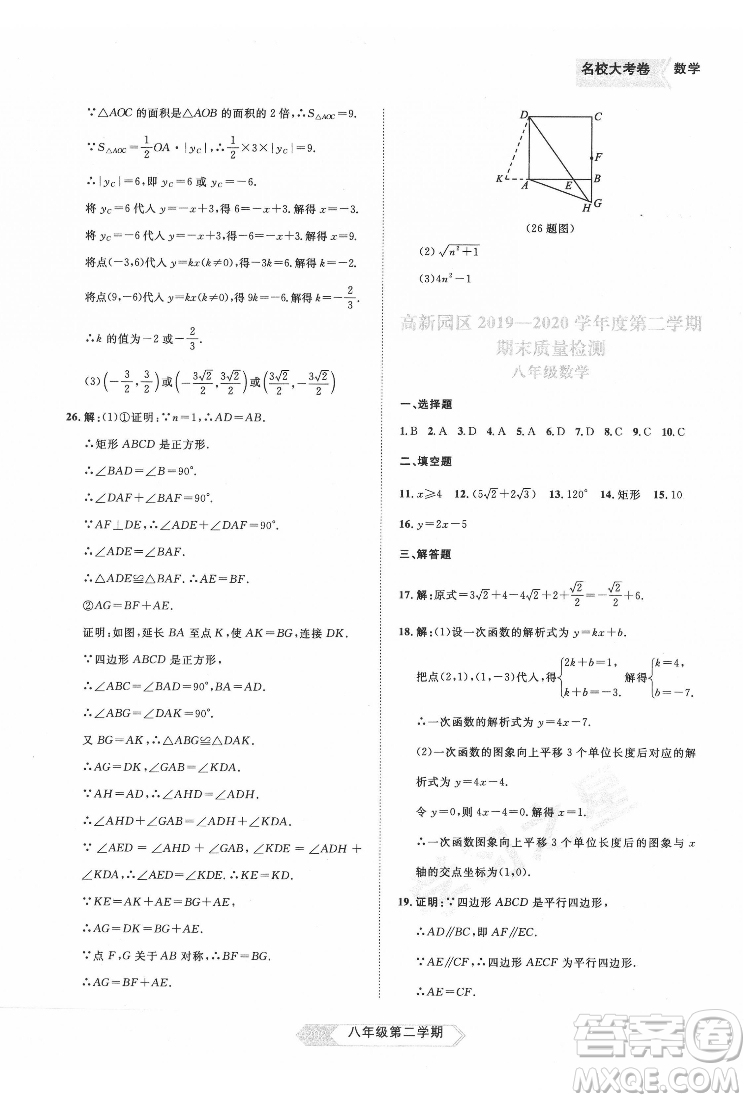 名校大考卷 数学
∵△AOC 的面积是△AOB 的面积的 2 倍,∴S△AOC=9.
∵S△AOC=1/2 OA·|yC|,∴1/2×3×|yC|=9.
∴|yC|=6,即 yC=6 或 yC=-6.
将 yC=6 代入 y=-x+3,得 6=-x+3.解得 x=-3.
将 yC=-6 代入 y=-x+3,得-6=-x+3.解得 x=9.
将点(-3,6)代入 y=kx(k≠0),得 6=-3k.解得 k=-2.
将点(9,-6)代入 y=kx(k≠0),得-6=9k.解得 k=-2/3.
∴k 的值为-2 或-2/3.
(3)(-3/2,3/2)或(3√2/2,-3√2/2)或(-3√2/2,3√2/2)
26.解:(1)①证明:∵n=1,∴AD=AB.
∴矩形 ABCD 是正方形.
∴∠BAD=∠B=90°.
∴∠DAF+∠BAF=90°.
∵AF⊥DE,∴∠ADE+∠DAF=90°.
∴∠ADE=∠BAF.
∴△ADE≌△BAF.∴AE=BF.
②AG=BF+AE.
证明:如图,延长 BA 至点 K,使 AK=BG,连接 DK.
∵四边形 ABCD 是正方形,
∴∠ABC=∠BAD=90°,AB=AD.
∴∠ABG=∠DAK=90°.
又 BG=AK,∴△ABG≌△DAK.
∴AG=DK,∠GAB=∠KDA.
∵AH=AD,∴∠ADH=∠AHD.
∴∠ADH+∠GAB=∠AHD+∠KDA.
∵∠AED=∠AHD+∠GAB,∠KDE=∠ADE+
∠KDA,∴∠AED=∠KDE.∴KD=KE.
∵KE=AK+AE=BG+AE,
∴AG=BG+AE.
∵点 F,G 关于 AB 对称,∴BF=BG.
∴AG=BF+AE.
D C
F
K A E B
H G
(26 题图)
(2)√(n²+1)
(3)4n²-1
高新园区 2019—2020 学年度第二学期
期末质量检测
八年级数学
一、选择题
1.B 2.A 3.D 4.A 5.C 6.B 7.B 8.D 9.C 10.C
二、填空题
11.x≥4 12.(5√2+2√3) 13.120° 14.矩形 15.10
16.y=2x-5
三、解答题
17.解:原式=3√2+4-4√2+2+√2/2=-√2/2+6.
18.解:(1)设一次函数的解析式为 y=kx+b.
把点(2,1),(1,-3)代入,得{2k+b=1, k+b=-3. 解得{k=4, b=-7.
∴一次函数的解析式为 y=4x-7.
(2)一次函数的图象向上平移 3 个单位长度后的解析式为
y=4x-4.
令 y=0,则 4x-4=0.解得 x=1.
∴一次函数图象向上平移 3 个单位长度后的图象与 x
轴的交点坐标为(1,0).
19.证明:∵四边形 ABCD 是平行四边形,
∴AD∥BC,即 AF∥EC.
∵AE∥CF,∴四边形 AECF 为平行四边形.
∴AE=CF.
八年级第二学期
答案卷
MXQE.COM